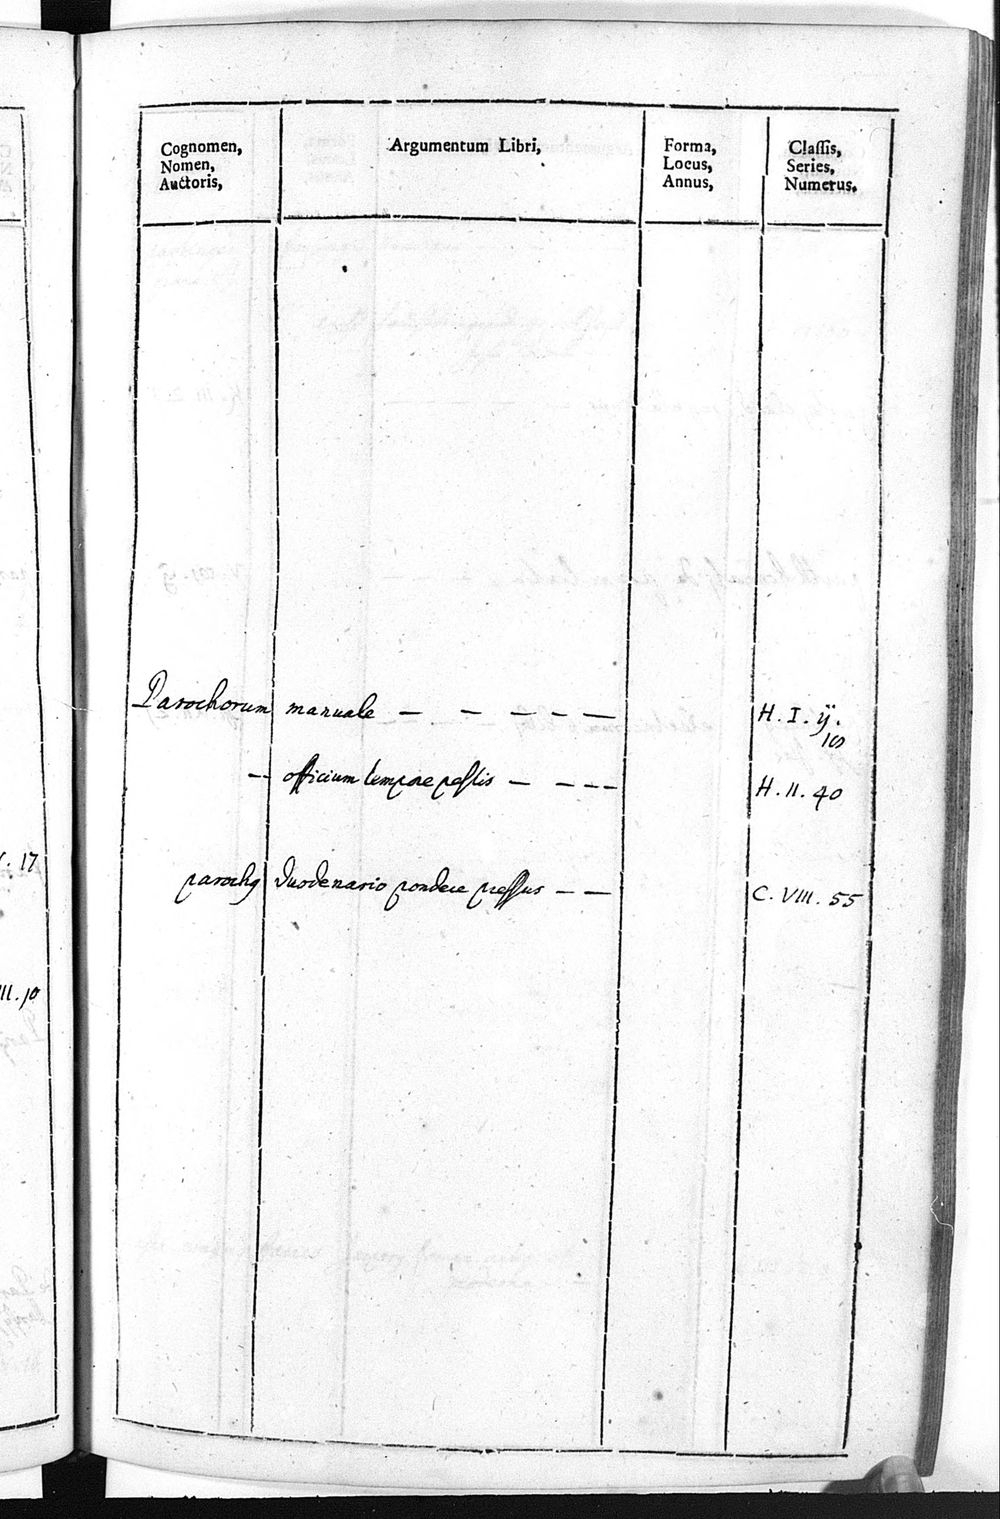 Cognomen,
Nomen,
Auctoris,
Argumentum Libri,
Forma,
Locus,
Annus,
Classis,
Series,
Numerus.
Parochorum manuale — — — — — H. I. ÿ.
10
-- officium tempore pestis — — - - H. II. 40
parochq Duodenario pondere pressus — — C. VIII. 55
17
II. 10